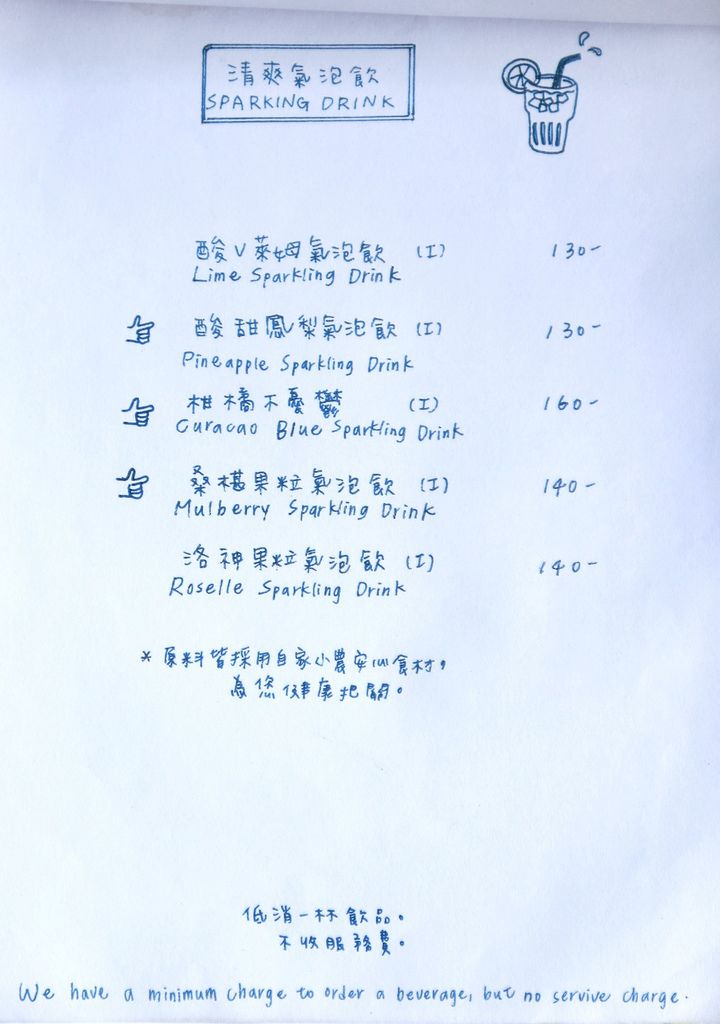 清爽氣泡飲
SPARKING DRINK
酸V萊姆氣泡飲 (I) 130-
Lime Sparkling Drink
酸甜鳳梨氣泡飲 (I) 130-
Pineapple Sparkling Drink
柑橘不憂鬱 (I) 160-
Curacao Blue Sparkling Drink
桑椹果粒氣泡飲 (I) 140-
Mulberry Sparkling Drink
洛神果粒氣泡飲 (I) 140-
Roselle Sparkling Drink
* 原料皆採用自家小農安心食材,
為您健康把關。
低消一杯飲品。
不收服務費。
We have a minimum charge to order a beverage, but no servive charge.